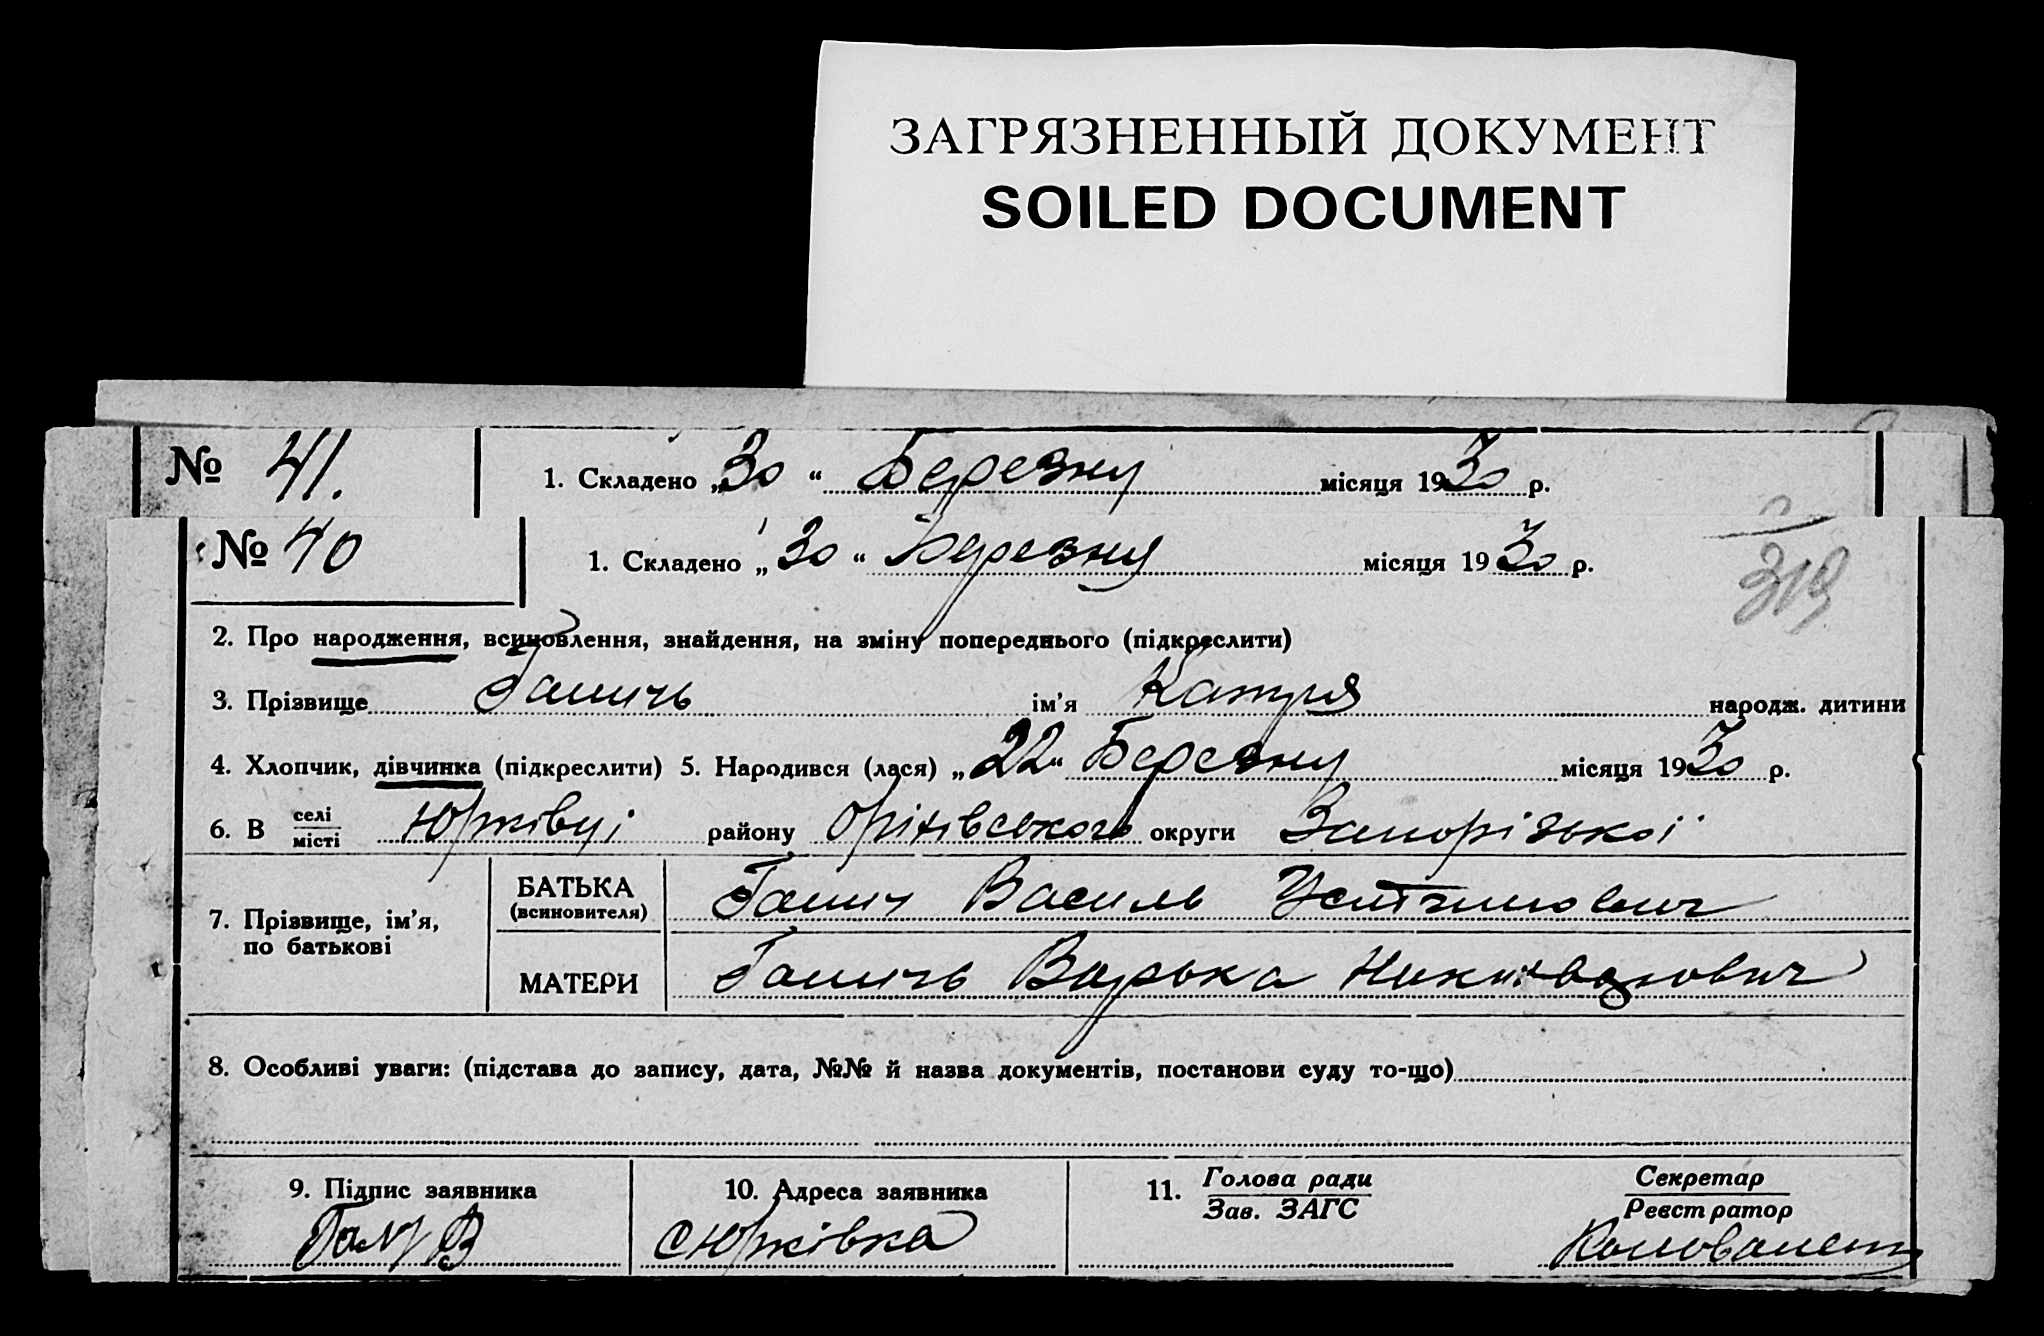 ЗАГРЯЗНЕННЫЙ ДОКУМЕНТ
SOILED DOCUMENT
№ 41. 1. Складено „30“ Березня місяця 1930 р.
№ 40 1. Складено „30“ Березня місяця 1930 р.
319
2. Про народження, всиновлення, знайдення, на зміну попереднього (підкреслити)
3. Прізвище Гашичь ім'я Катря народж. дитини
4. Хлопчик, дівчинка (підкреслити) 5. Народився (лася) „22“ Березня місяця 1930 р.
6. В селі місті Юрківці району Оріхівського округи Запорізької
7. Прізвище, ім'я, по батькові
БАТЬКА (всиновителя) Гашич Василь Устимович
МАТЕРИ Гашичь Варька
8. Особливі уваги: (підстава до запису, дата, №№ й назва документів, постанови суду то-що)
9. Підпис заявника 10. Адреса заявника 11. Голова ради Зав. ЗАГС Секретар Реєстратор
с Юрківка